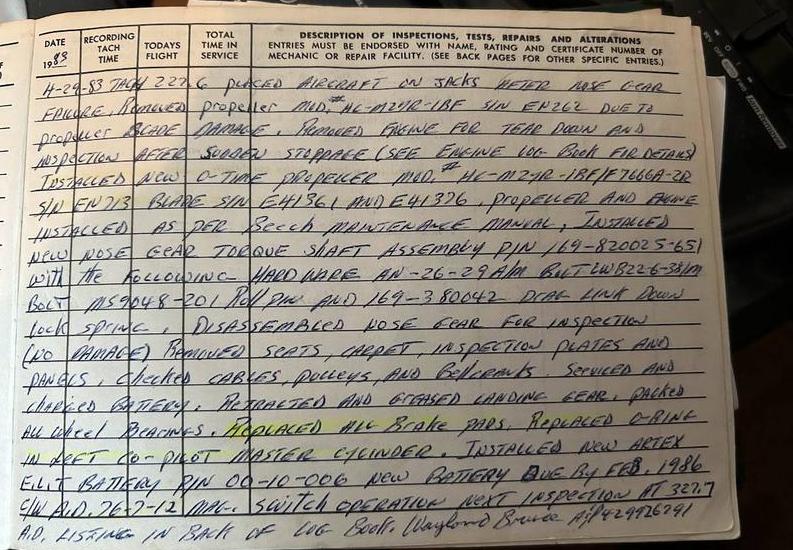 DATE
1983
RECORDING TACH TIME
TODAYS FLIGHT
TOTAL TIME IN SERVICE
DESCRIPTION OF INSPECTIONS, TESTS, REPAIRS AND ALTERATIONS
ENTRIES MUST BE ENDORSED WITH NAME, RATING AND CERTIFICATE NUMBER OF
MECHANIC OR REPAIR FACILITY. (SEE BACK PAGES FOR OTHER SPECIFIC ENTRIES.)
4-29-83 TACH 227.6 PLACED AIRCRAFT ON JACKS AFTER NOSE GEAR
FAILURE. Removed propeller MOD.# HC-M2YR-1BF S/N EN262 DUE TO
propeller BLADE DAMAGE. REMOVED ENGINE FOR TEAR DOWN AND
INSPECTION AFTER SUDDEN STOPPAGE (SEE ENGINE LOG BOOK FOR DETAILS)
INSTALLED NEW 0-TIME PROPELLER MOD.# HC-M2YR-1BF/F7666A-2R
S/N EN713 BLADE S/N E41361 AND E41376. PROPELLER AND ENGINE
INSTALLED AS PER Beech MAINTENANCE MANUAL. INSTALLED
NEW NOSE GEAR TORQUE SHAFT ASSEMBLY P/N 169-820025-651
WITH the FOLLOWING HARDWARE AN-26-29A/M BOLT LWB22-6-
BOLT MS9048-201 Roll PIN AND 169-380042 DRAG LINK DOWN
lock SPRING. DISASSEMBLED NOSE GEAR FOR INSPECTION
(NO DAMAGE) Removed SEATS, CARPET, INSPECTION PLATES AND
PANELS. Checked CABLES, PULLEYS, AND Bellcranks. SERVICED AND
CHARGED BATTERY. RETRACTED AND GREASED LANDING GEAR. PACKED
ALL Wheel BEARINGS. REPLACED ALL Brake PADS. REPLACED O-RING
IN LEFT CO-PILOT MASTER CYLINDER. INSTALLED NEW ARTEX
E.L.T BATTERY P/N 00-10-006 NEW BATTERY DUE BY FEB. 1986
C/W A.D. 76-7-12 MAG. SWITCH OPERATION NEXT INSPECTION AT 327.7
A.D. LISTING IN BACK OF LOG BOOK. Wayland A&P 429926291